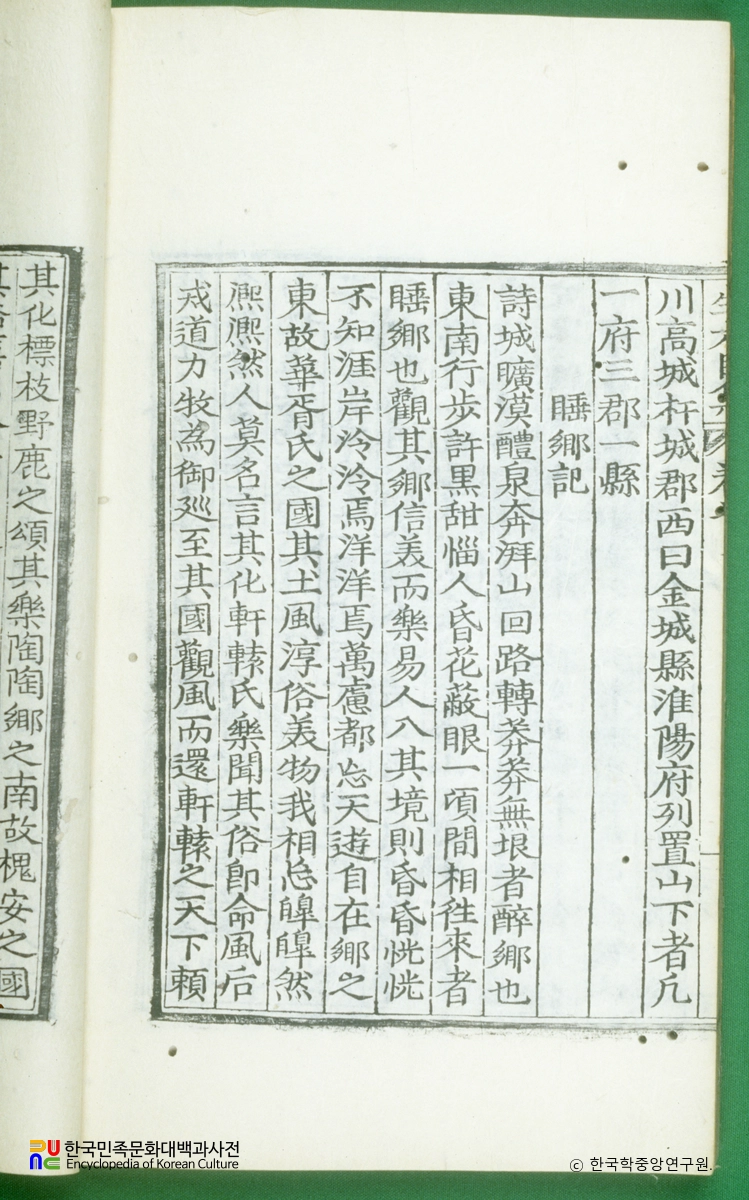 川高城杆城郡西曰金城縣淮陽府列置山下者凡
一府三郡一縣
睡鄉記
詩城曠漠醴泉奔湃山回路轉莽莽無垠者醉鄉也
東南行步許黑甜惱人昏花蔽眼一頃間相徃來者
睡鄉也觀其鄉信美而樂易人入其境則昏昏恍恍
不知涯岸泠泠焉洋洋焉萬慮都忘天遊自在鄉之
東故華胥氏之國其土風淳俗美物我相忘皥皥然
熈熈然人莫名言其化軒轅氏樂聞其俗卽命風后
戒道力牧為御廵至其國觀風而還軒轅之天下賴
其化標枝野鹿之頌其樂陶陶鄉之南故槐安之國
한국민족문화대백과사전
Encyclopedia of Korean Culture
© 한국학중앙연구원.